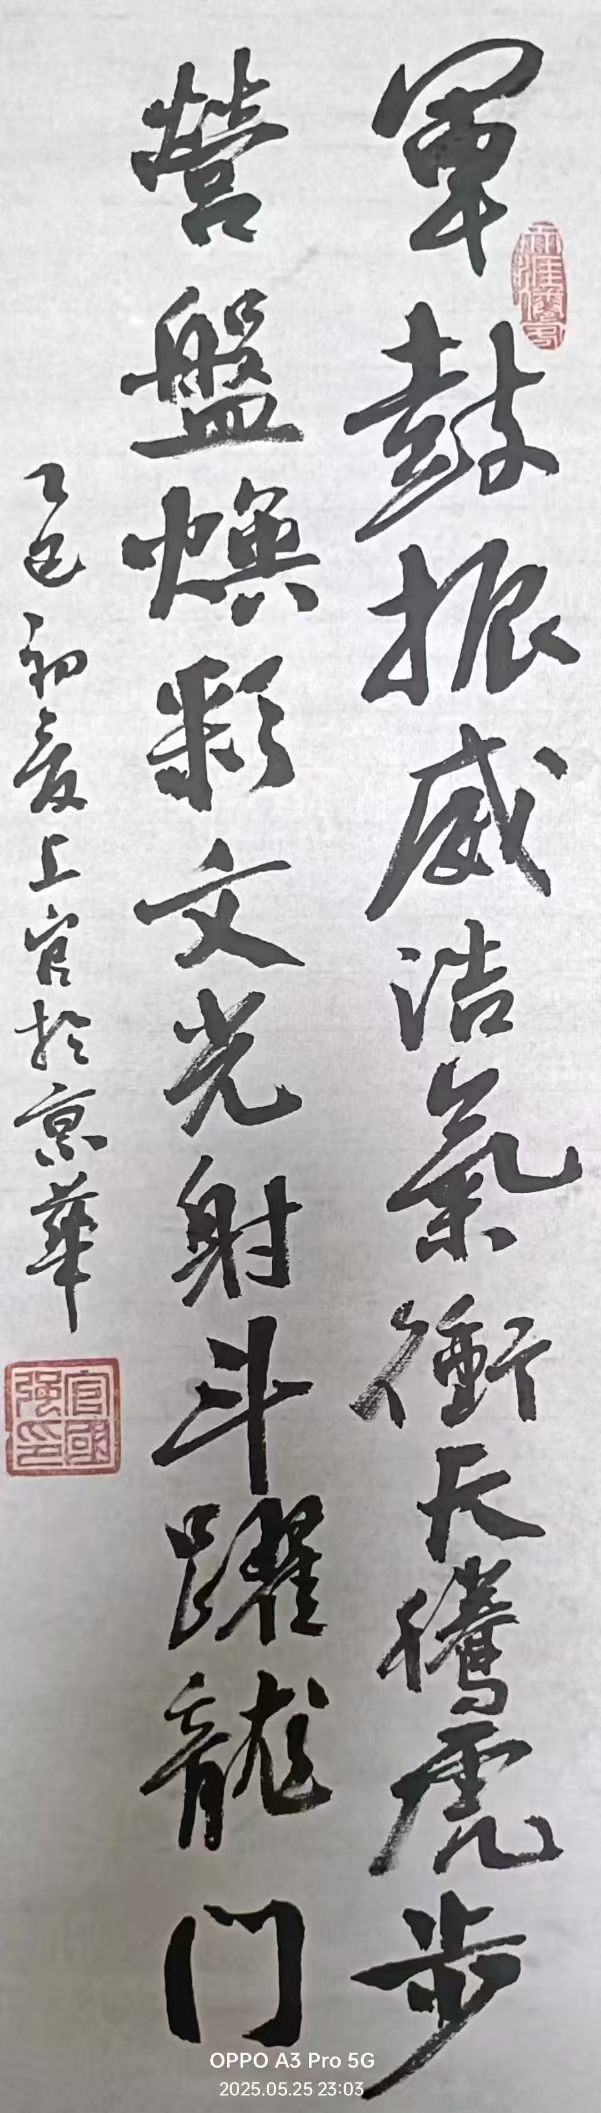 軍鼓振威浩氣衝天騰虎步
營盤煥彩文光射斗躍龍门
乙巳初夏上官於京華
官國强印
OPPO A3 Pro 5G
2025.05.25 23:03